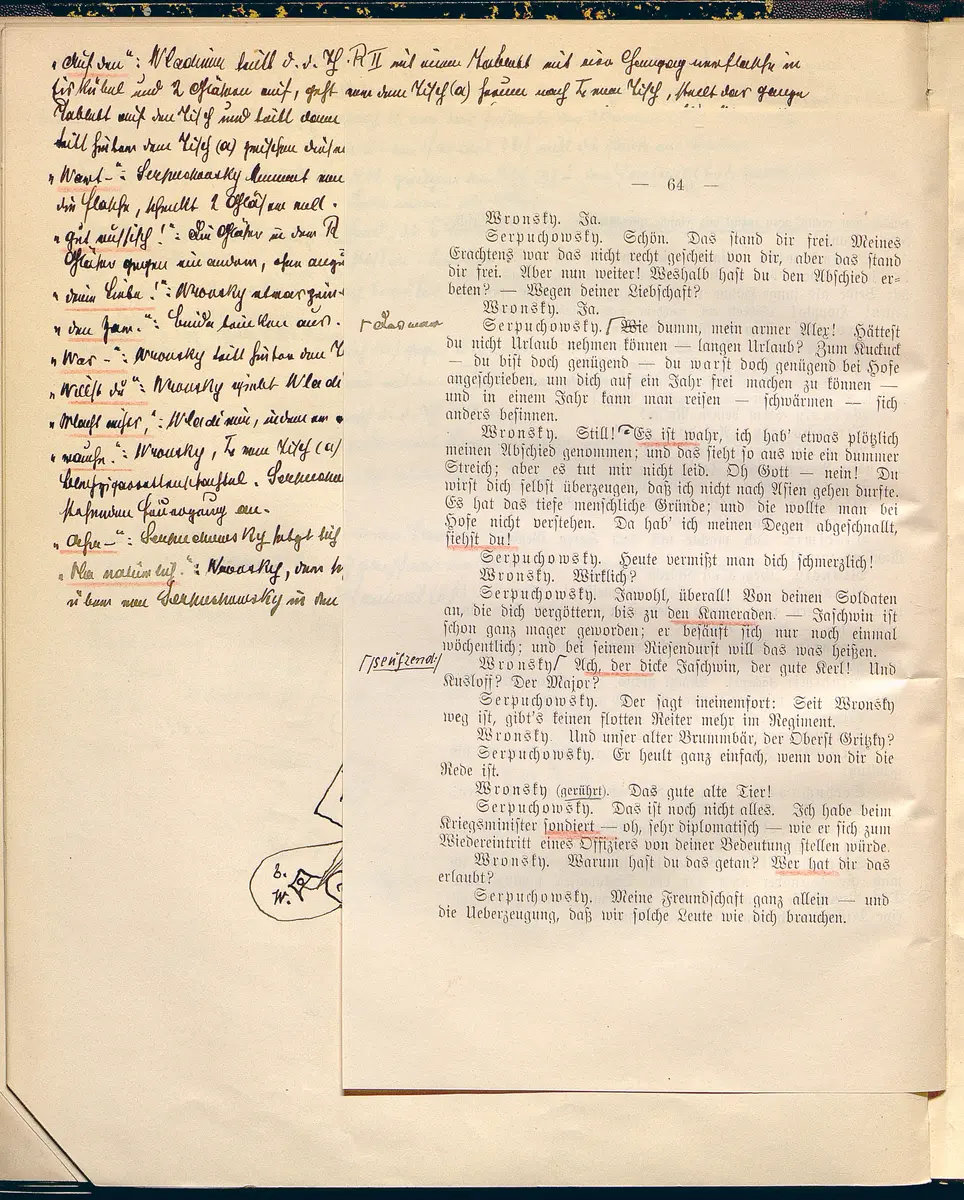 „Auf den“: Wladimir tritt d. d. T. R II mit einem Tablett mit einer Champagnerflasche in
Eiskübel und 2 Gläsern auf, geht von dem Tisch (a) herum nach zum Tisch, stellt das ganze
Tablett auf den Tisch und tritt dann
tritt hinter dem Tisch (a) zwischen
„Wart –“: Serpuchowsky nimmt von
die Flasche, schenkt 2 Gläser voll.
„gut russisch!“: die Gläser in dem R
Gläser gegen einander, ohne
„deine Liebe!“: Wronsky etwas
„den Zaren.“: beide trinken aus.
„War –“: Wronsky tritt hinter den T
„Willst du“: Wronsky winkt Wladi
„Macht nichts,“: Wladimir, indem er
„rauche.“: Wronsky, zum Tisch (a)
Serpuchow
stehenden Feuerzeug an.
„Aehn –“: Serpuchowsky setzt sich
„Na natürlich.“: Wronsky, dem
über von Serpuchowsky in den
b.
W.
— 64 —
Wronsky. Ja.
Serpuchowsky. Schön. Das stand dir frei. Meines
Erachtens war das nicht recht gescheit von dir, aber das stand
dir frei. Aber nun weiter! Weshalb hast du den Abschied er-
beten? — Wegen deiner Liebschaft?
Wronsky. Ja.
Das war
Serpuchowsky. Wie dumm, mein armer Alex! Hättest
du nicht Urlaub nehmen können — langen Urlaub? Zum Kuckuck
— du bist doch genügend — du warst doch genügend bei Hofe
angeschrieben, um dich auf ein Jahr frei machen zu können —
und in einem Jahr kann man reisen — schwärmen — sich
anders besinnen.
Wronsky. Still! Es ist wahr, ich hab' etwas plötzlich
meinen Abschied genommen; und das sieht so aus wie ein dummer
Streich; aber es tut mir nicht leid. Oh Gott — nein! Du
wirst dich selbst überzeugen, daß ich nicht nach Asien gehen durfte.
Es hat das tiefe menschliche Gründe; und die wollte man bei
Hofe nicht verstehen. Da hab' ich meinen Degen abgeschnallt,
siehst du!
Serpuchowsky. Heute vermißt man dich schmerzlich!
Wronsky. Wirklich?
Serpuchowsky. Jawohl, überall! Von deinen Soldaten
an, die dich vergöttern, bis zu den Kameraden. — Jaschwin ist
schon ganz mager geworden; er besäuft sich nur noch einmal
wöchentlich; und bei seinem Riesendurst will das was heißen.
(seufzend)
Wronsky. Ach, der dicke Jaschwin, der gute Kerl! Und
Kusloff? Der Major?
Serpuchowsky. Der sagt ineinemfort: Seit Wronsky
weg ist, gibt's keinen flotten Reiter mehr im Regiment.
Wronsky. Und unser alter Brummbär, der Oberst Gritzky?
Serpuchowsky. Er heult ganz einfach, wenn von dir die
Rede ist.
Wronsky (gerührt). Das gute alte Tier!
Serpuchowsky. Das ist noch nicht alles. Ich habe beim
Kriegsminister sondiert — oh, sehr diplomatisch — wie er sich zum
Wiedereintritt eines Offiziers von deiner Bedeutung stellen würde.
Wronsky. Warum hast du das getan? Wer hat dir das
erlaubt?
Serpuchowsky. Meine Freundschaft ganz allein — und
die Ueberzeugung, daß wir solche Leute wie dich brauchen.